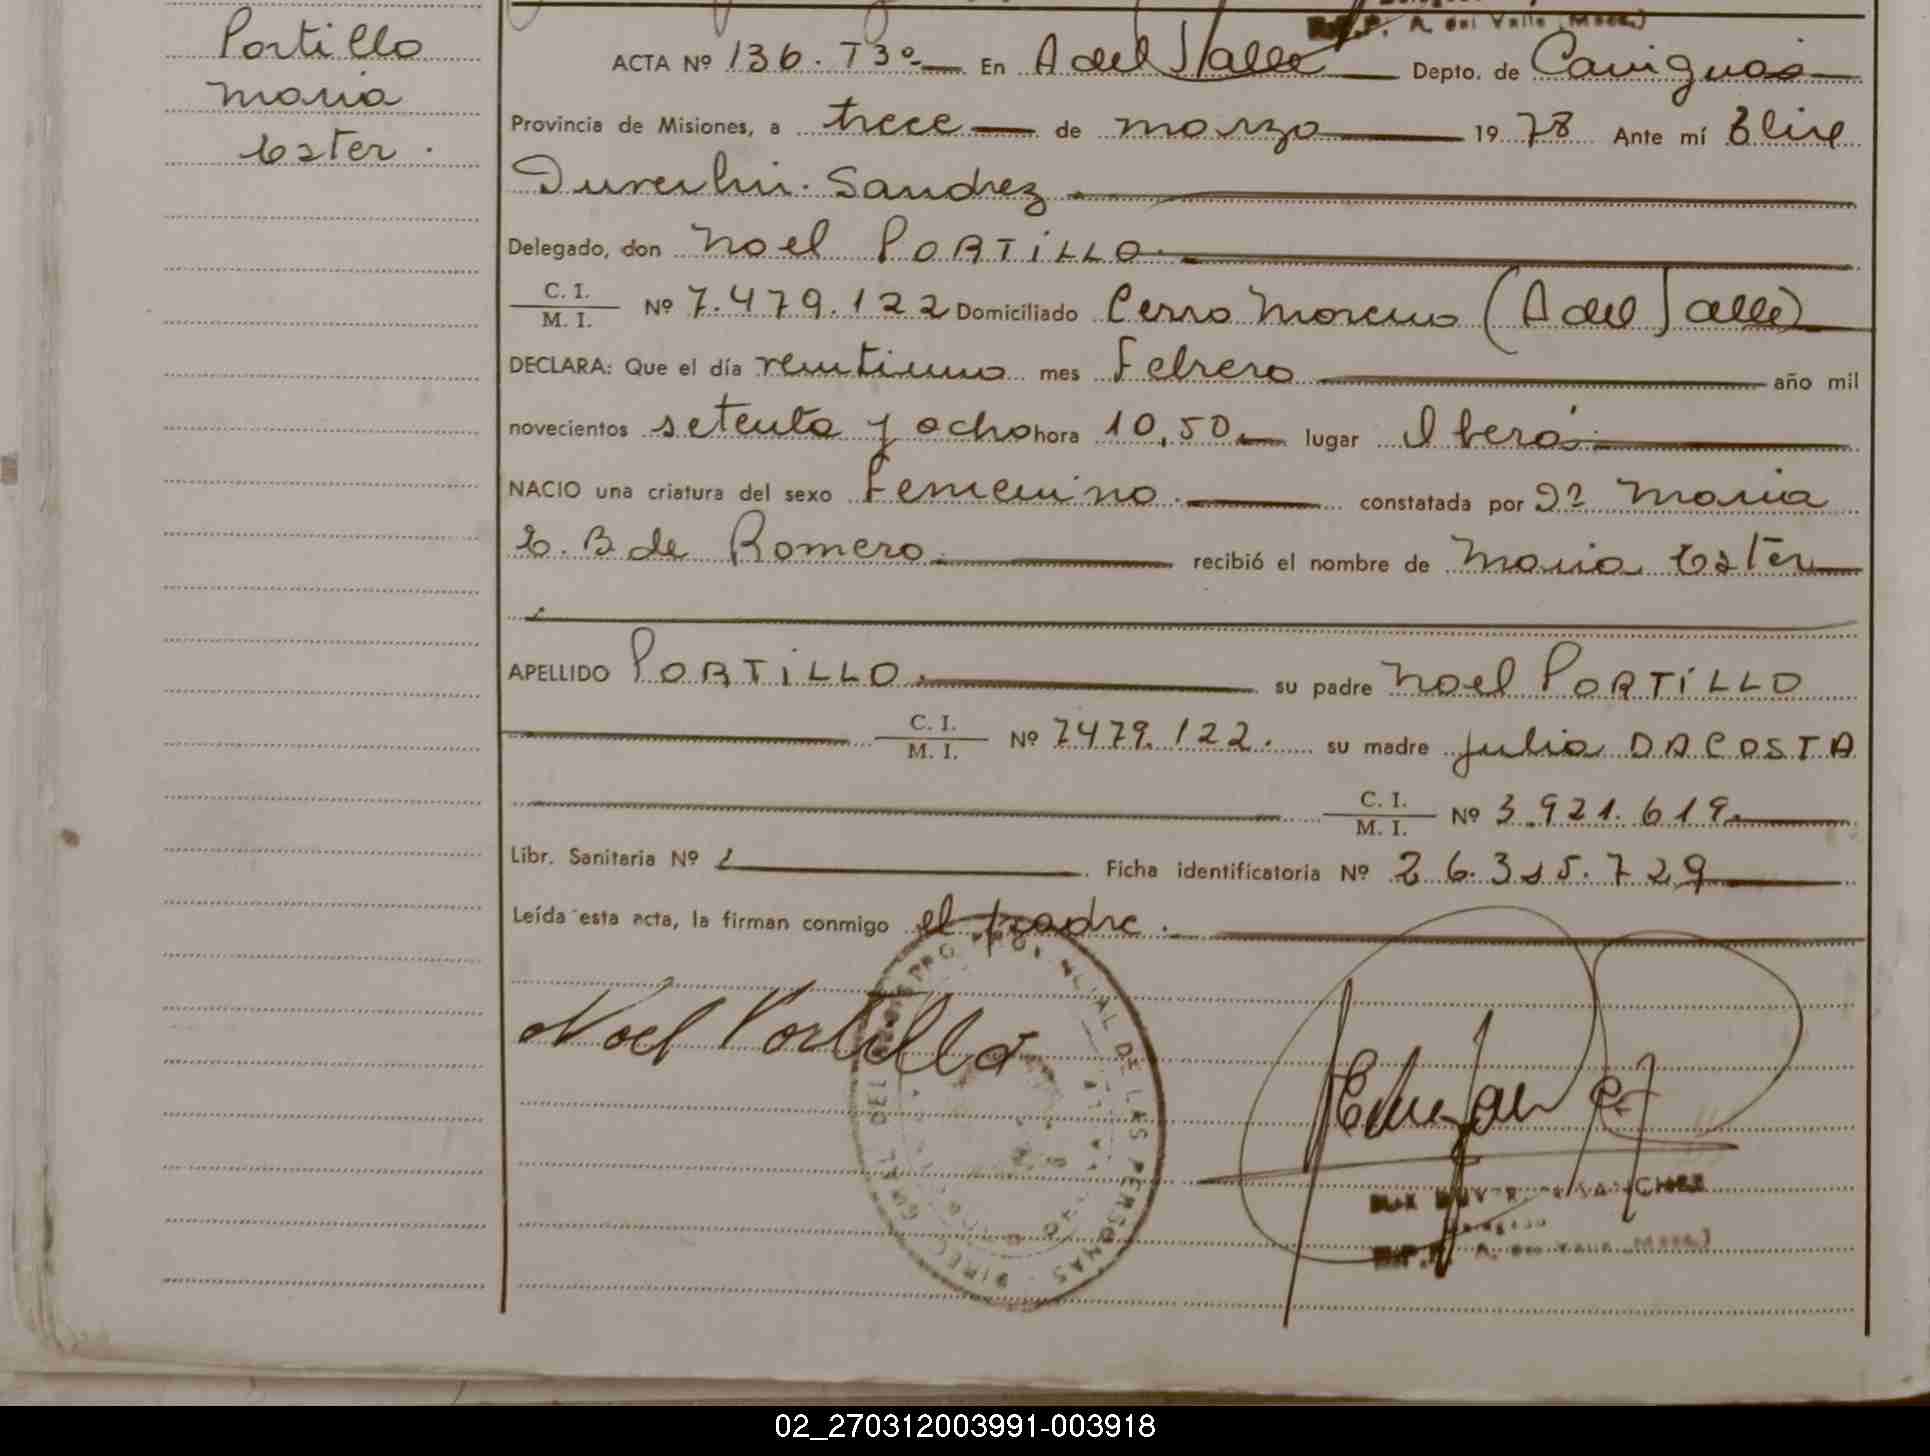 Portillo
Maria
Ester.
A. del Valle (Mnes.)
ACTA Nº 136. T3º En A del Valle Depto. de Cainguás
Provincia de Misiones, a trece de marzo 1978 Ante mí Elix
Sanchez
Delegado, don Noel PORTiLLO.
C. I.
M. I. Nº 7.479.122 Domiciliado Cerro Moreno (A del Valle)
DECLARA: Que el día veintiuno mes Febrero año mil
novecientos setenta y ocho hora 10,50 lugar Iberá
NACIO una criatura del sexo Femenino. constatada por Dª Maria
E. B de Romero. recibió el nombre de Maria Ester
APELLIDO PORTiLLO. su padre Noel PORTiLLO
C. I.
M. I. Nº 7479.122. su madre Julia DACOSTA
C. I.
M. I. Nº 3.921.619.
Libr. Sanitaria Nº Ficha identificatoria Nº 26.315.729
Leída esta acta, la firman conmigo el padre.
Noel Portillo
DIREC. GRAL. DEL REGISTRO PROVINCIAL DE LAS PERSONAS
SANCHEZ
Delegado
R.P.P. A. del Valle (Mnes.)
02_270312003991-003918